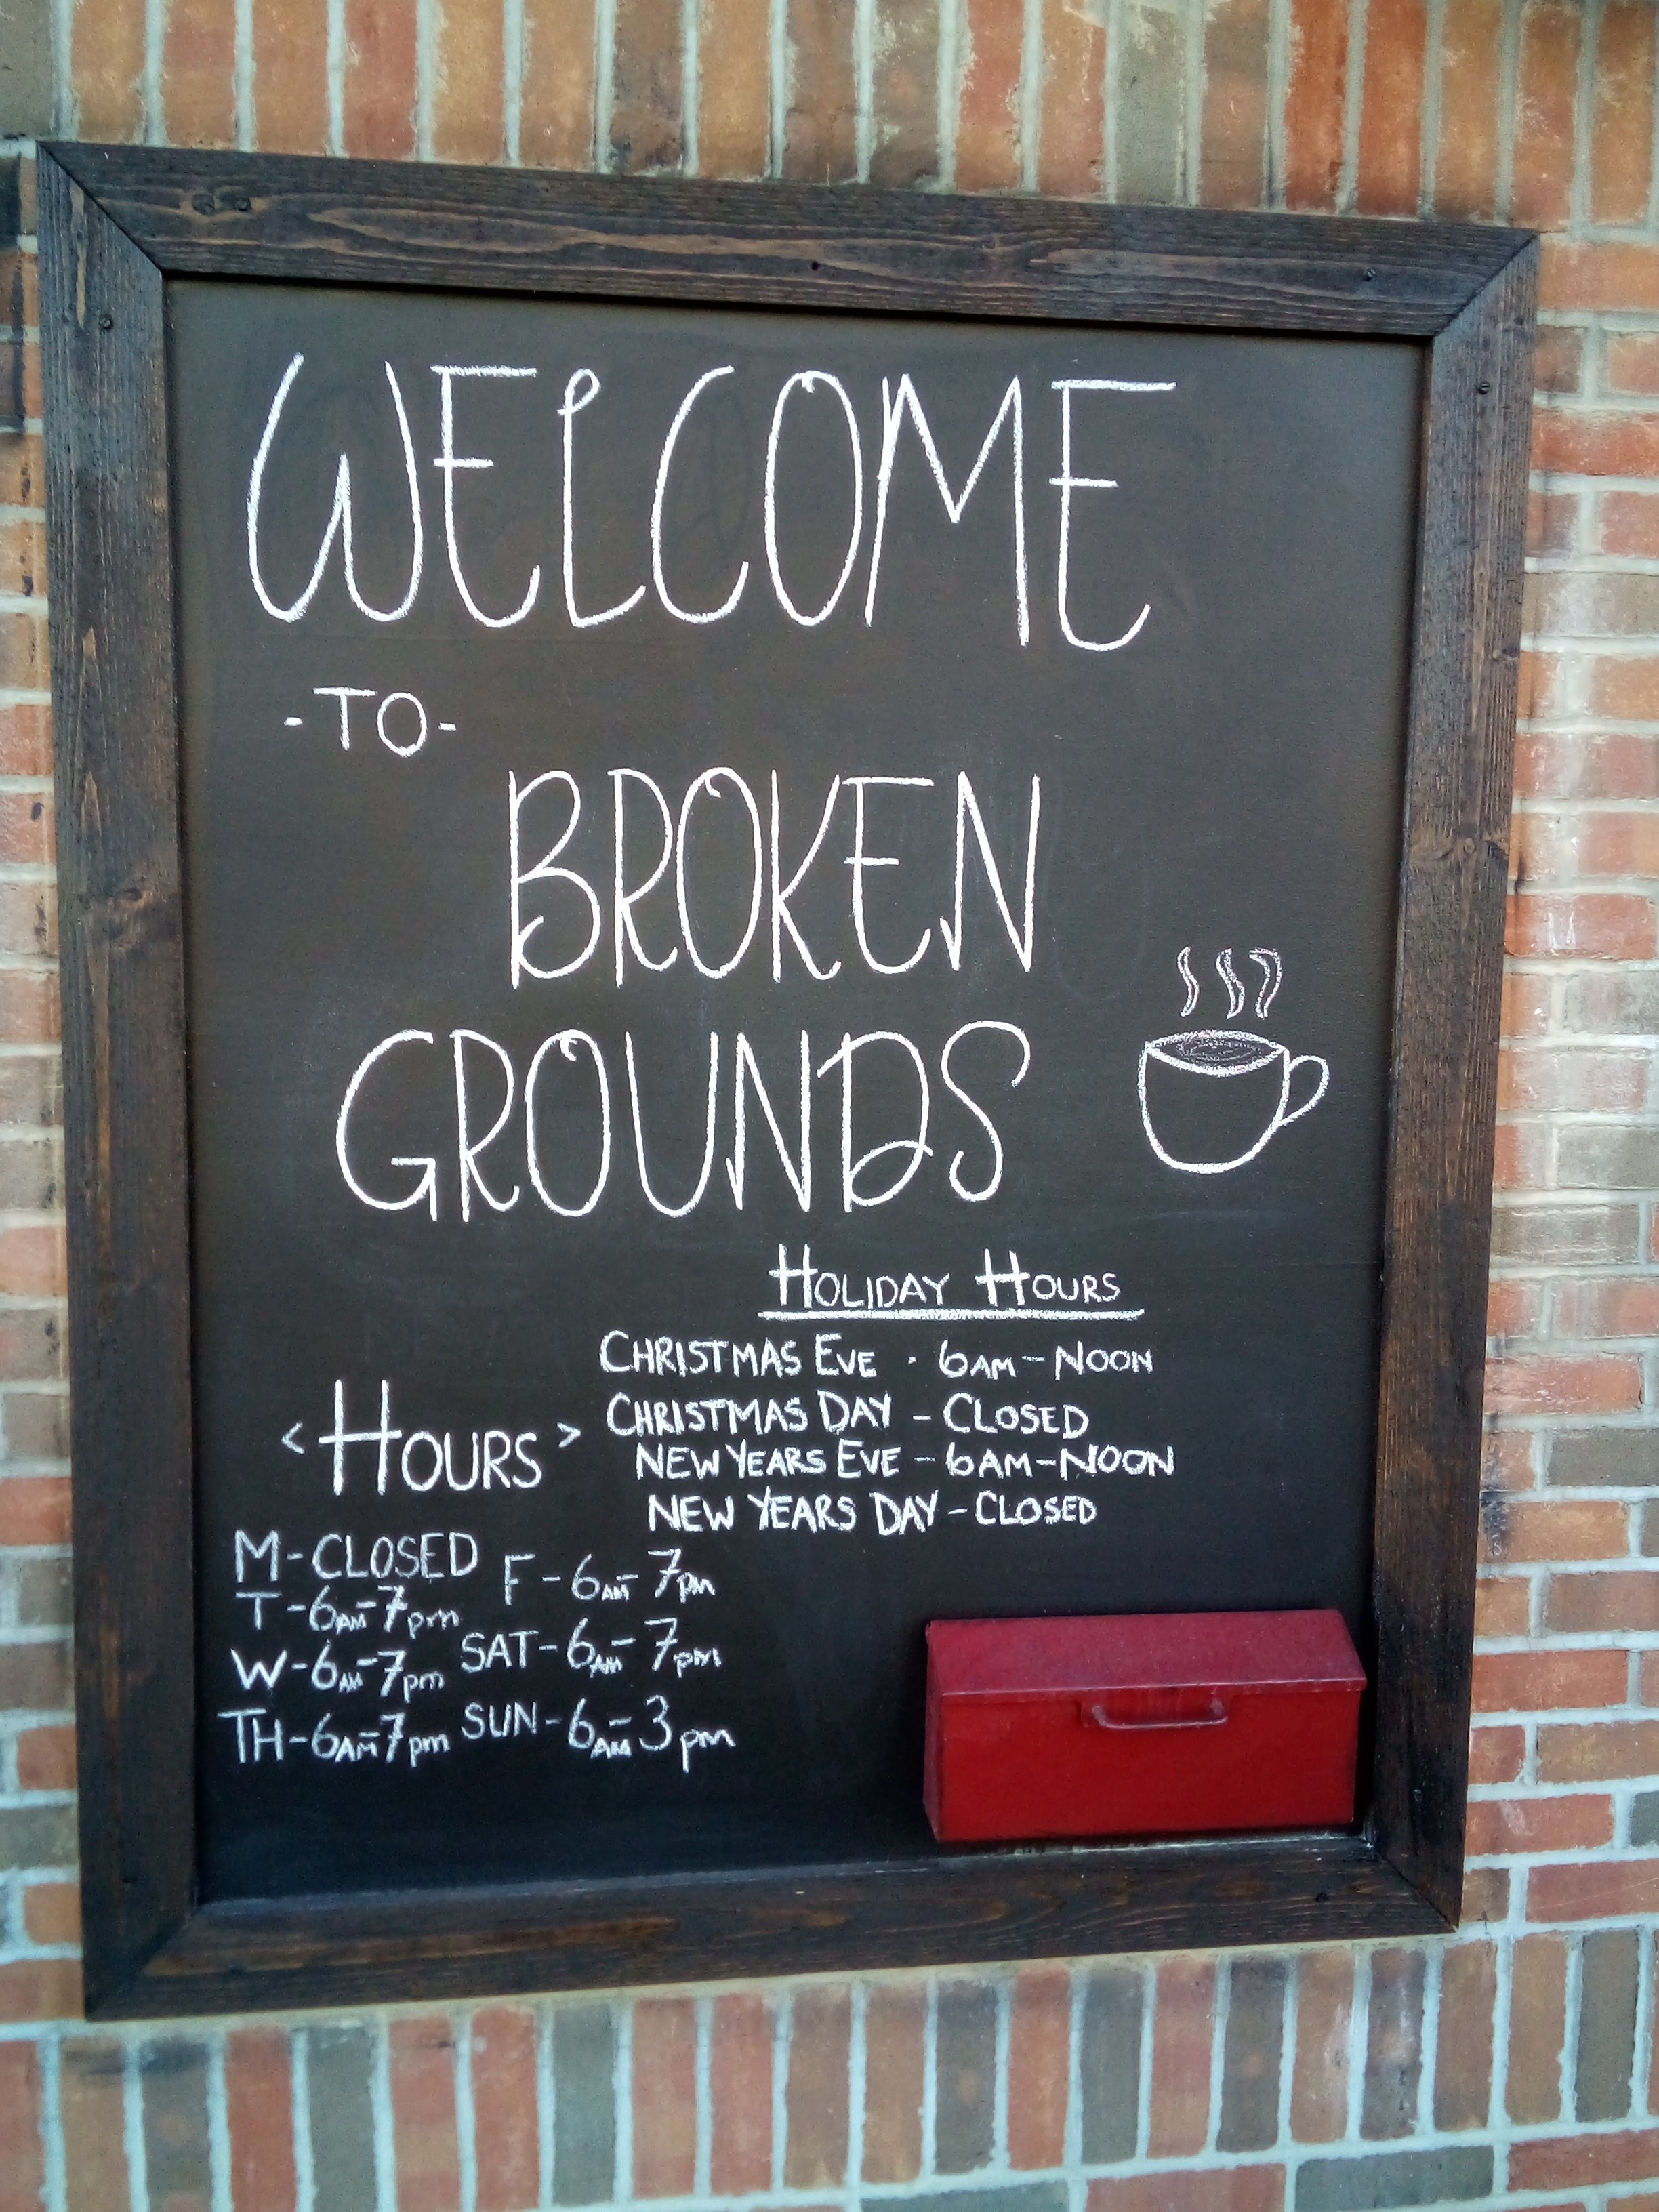 WELCOME
-TO-
BROKEN
GROUNDS
HOLIDAY HOURS
CHRISTMAS EVE - 6AM-NOON
CHRISTMAS DAY - CLOSED
NEW YEARS EVE - 6AM-NOON
NEW YEARS DAY - CLOSED
<HOURS>
M-CLOSED
T-6AM-7pm
W-6AM-7pm
TH-6AM-7pm
F-6AM-7pm
SAT-6AM-7pm
SUN-6AM-3pm